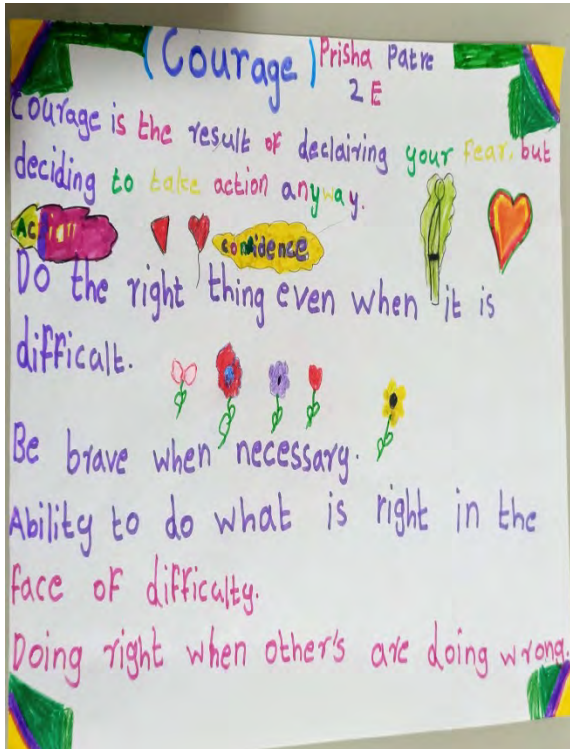 (Courage) Prisha Patre
2 E
Courage is the result of declairing your fear, but
deciding to take action anyway.
confidence
Do the right thing even when it is
difficalt.
Be brave when necessary.
Ability to do what is right in the
face of difficalty.
Doing right when other's are doing wrong.